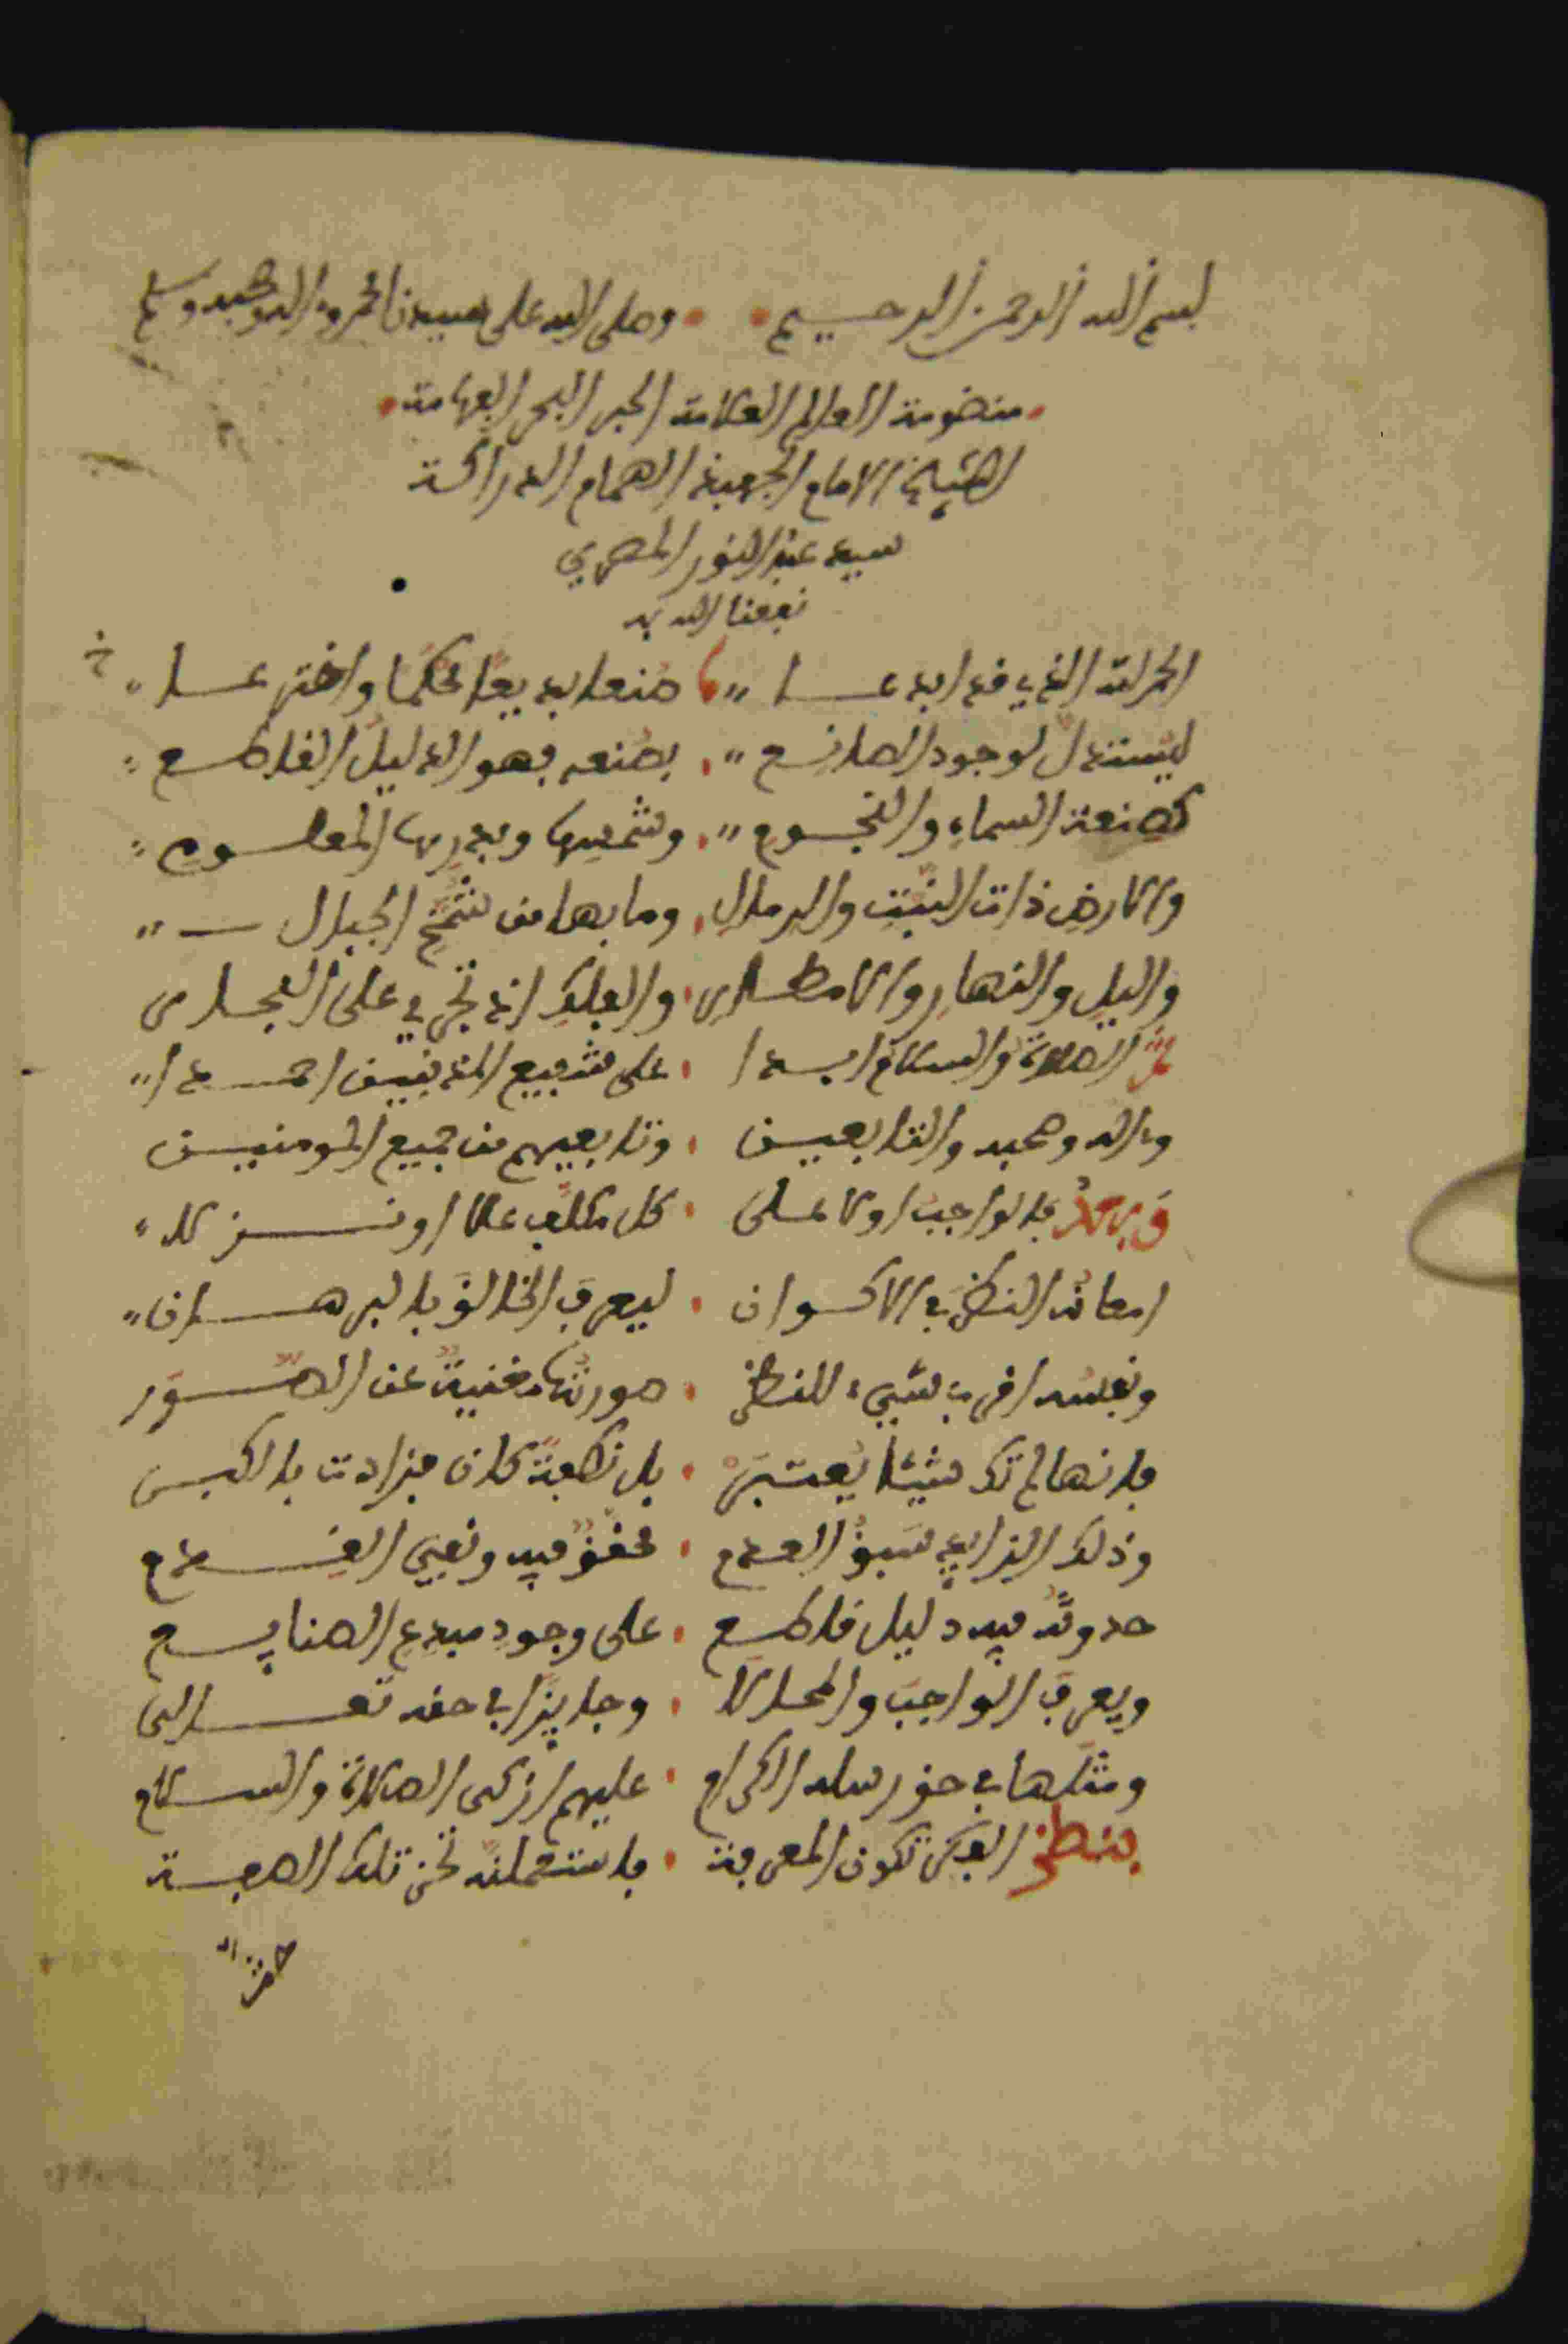 بسم الله الرحمن الرحيم وصلى الله على سيدنا محمد وءاله وصحبه وسلم
منضومة العالم العلامة الحبر البحر الفهامة
الشيخ الامام الجهبذ الهمام الدراكة
سيد عبد النور المصري
نفعنا الله به
الحمد لله الذي قد ابدعا صنعا بديعًا محكمًا واخترعا
ليستدل لوجود الصانع بصنعه فهو الدليل القاطع
كصنعة السماء والنجوم وشمسها وبدرها المعلوم
والارض ذات النبت والرمال وما بها من شمخ الجبال
واليل والنهار والامطار والفلك اذ تجري على البحار
ثم الصلاة والسلام ابدا على شفيع المذنبين احمدا
وءاله وصحبه والتابعين وتابعيهم من جميع المومنين
وبعد فالواجب اولا على كل مكلف علا او نزلا
امعانه النظر في الاكوان ليعرف الخالق بالبرهان
ونفسه اقرب شيء للنظر صورتها مغنية عن الصور
فانها لم تك شيئا يعتبر بل نطفة كان فزادت بالكبر
وذلك الزايد سبق العدم محقق فيه ونفي القدم
حدوثه فيه دليل قاطع على وجود مبدع الصنايع
ويعرف الواجب والمحالا وجايزا في حقه تعالى
ومثلها في حق رسله الكرام عليهم ازكى الصلاة والسلام
بنظر الفكر تكون المعرفة فاستعملنه تحز تلك الصفة